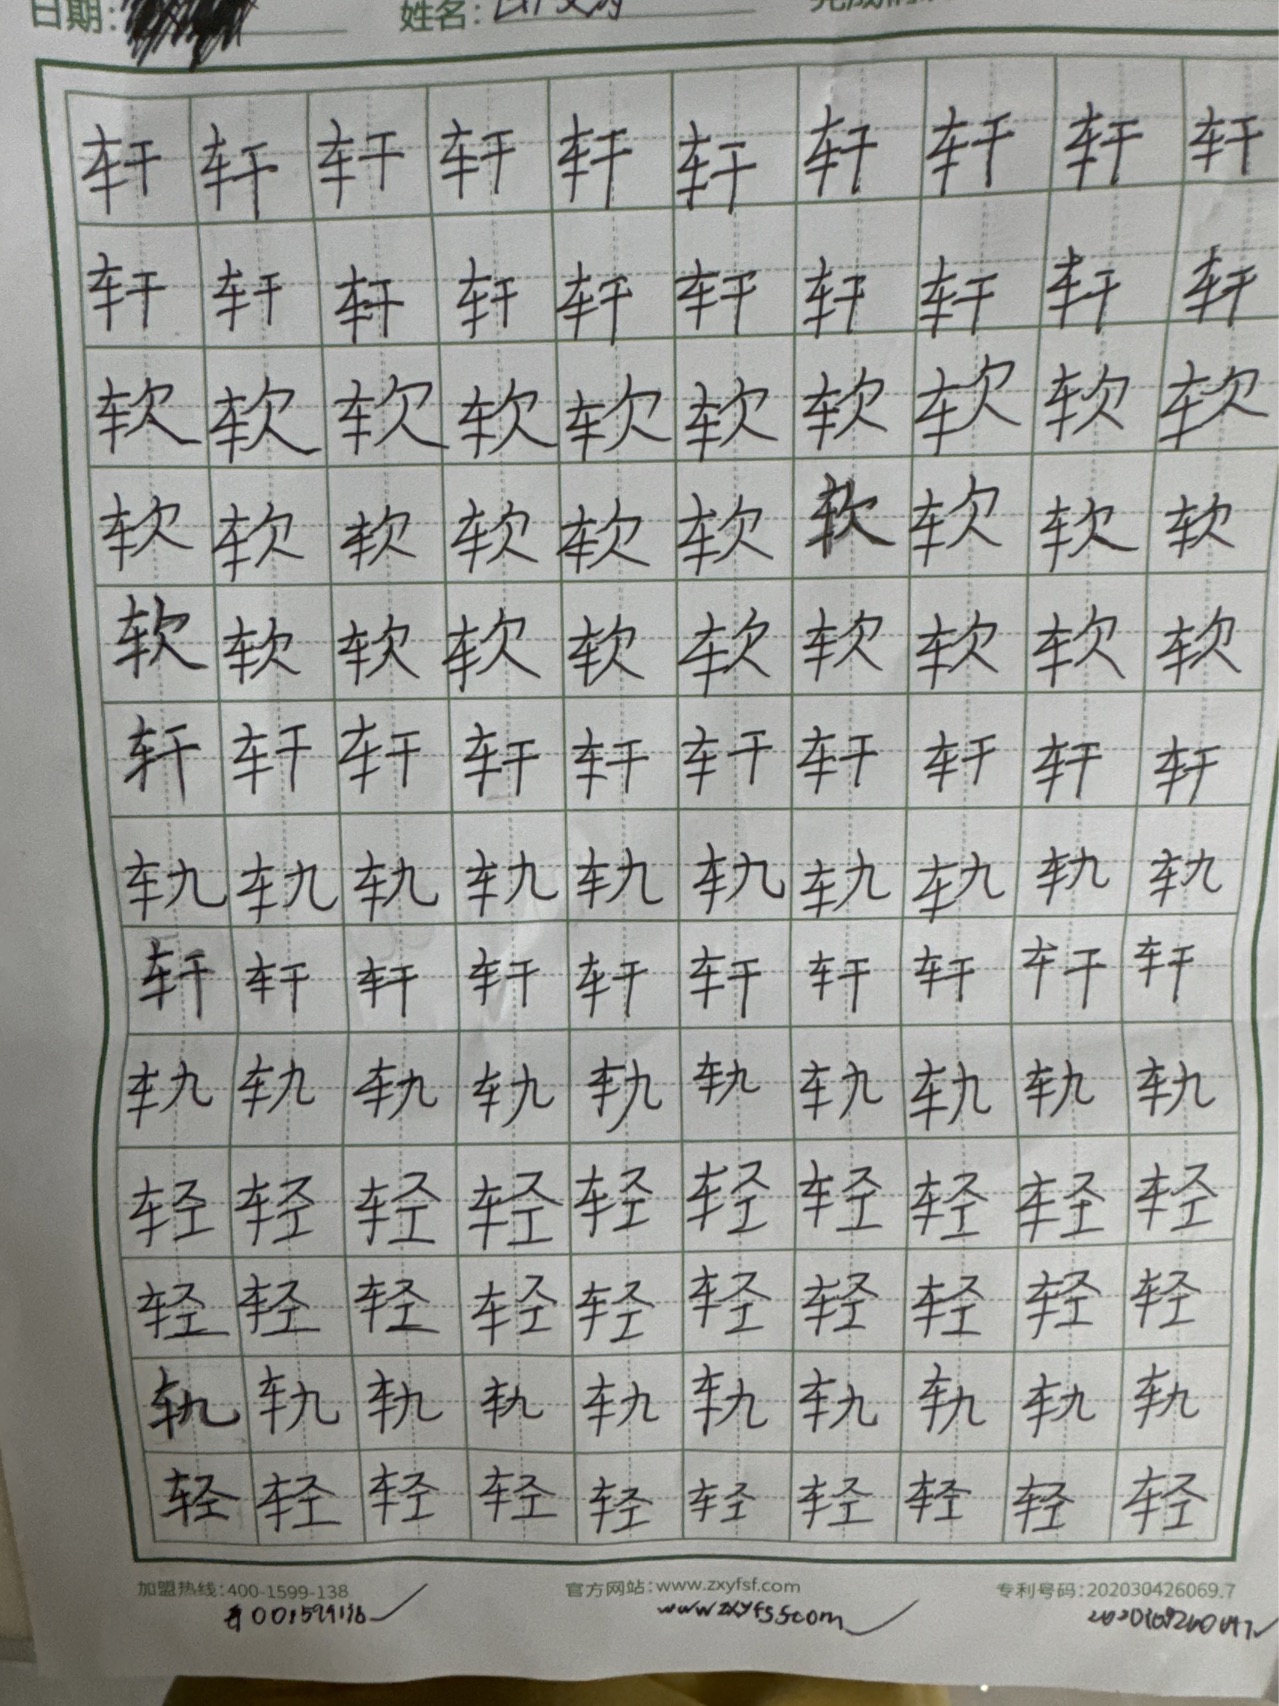 日期: 姓名:
轩轩轩轩轩轩轩轩轩轩
轩轩轩轩轩轩轩轩轩轩
软软软软软软软软软软
软软软软软软软软软软
软软软软软软软软软软
轩轩轩轩轩轩轩轩轩轩
轨轨轨轨轨轨轨轨轨轨
轩轩轩轩轩轩轩轩轩轩
轨轨轨轨轨轨轨轨轨轨
轻轻轻轻轻轻轻轻轻轻
轻轻轻轻轻轻轻轻轻轻
轨轨轨轨轨轨轨轨轨轨
轻轻轻轻轻轻轻轻轻轻
加盟热线:400-1599-138 官方网站:www.zxyfsf.com 专利号码:202030426069.7